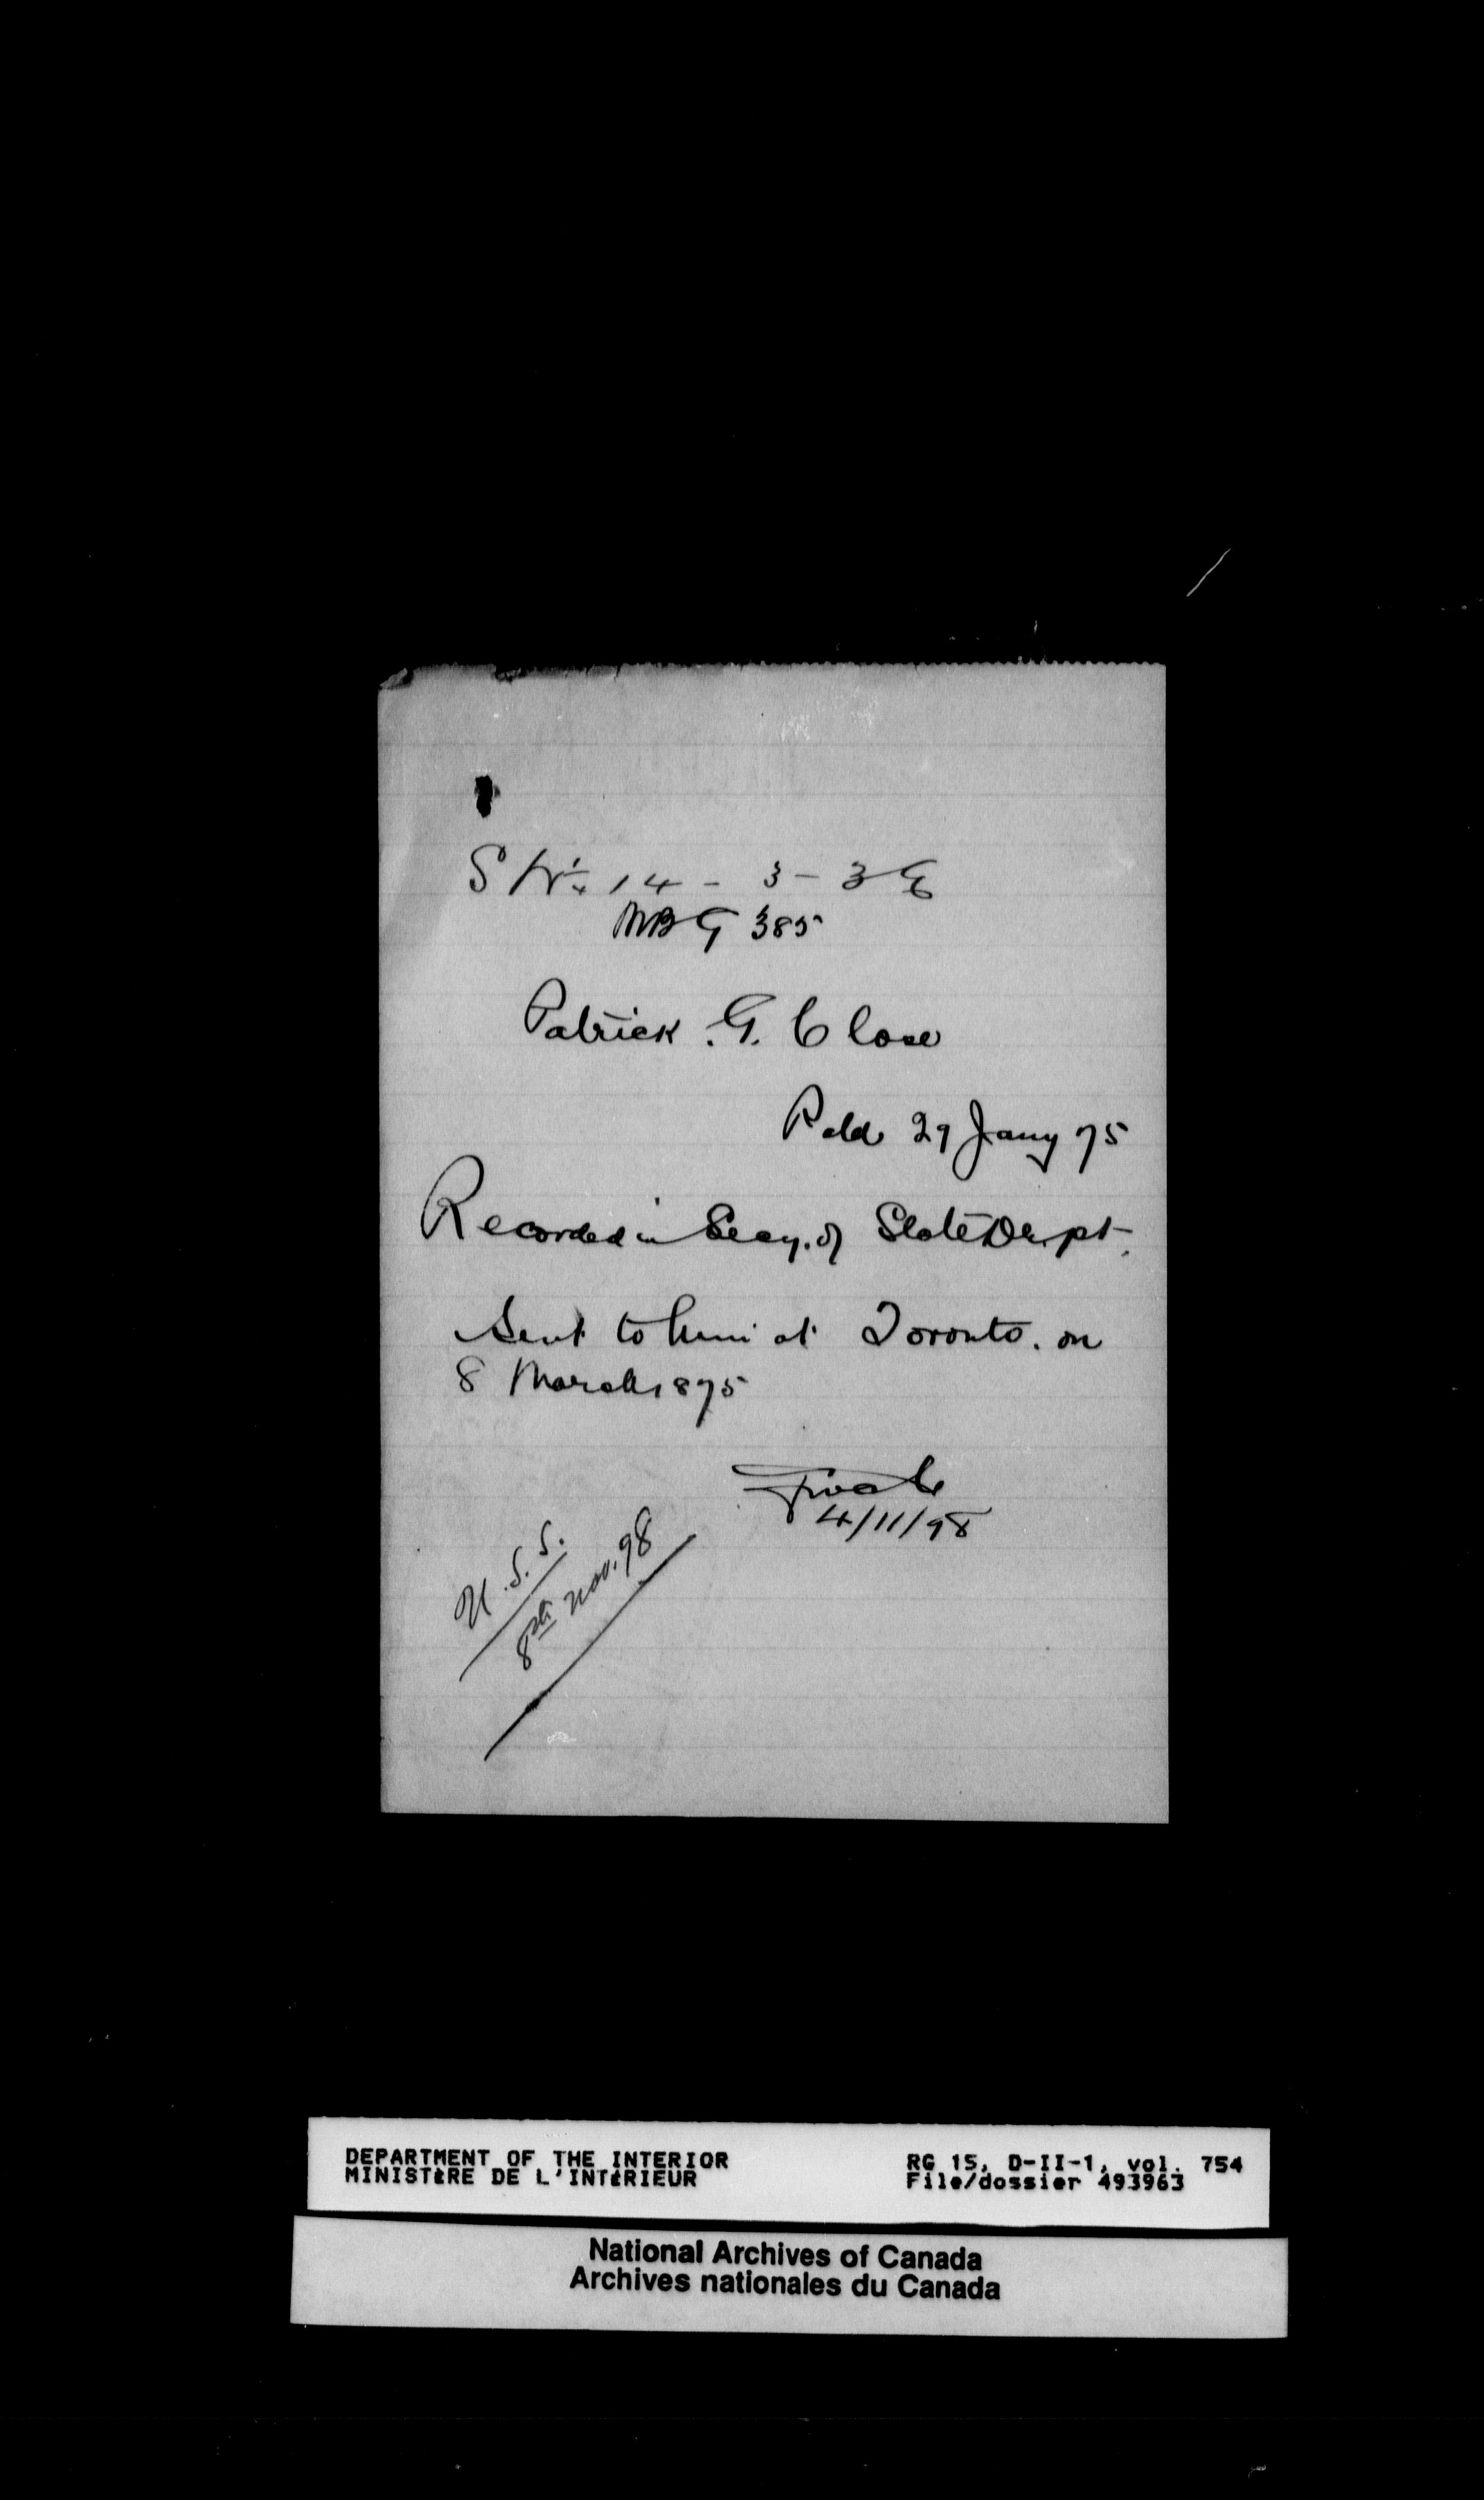 SW¼ 14 - 3 - 3 E
MBG 385
Patrick . G. Close
Patd 29 Jany 75
Recorded in Secy. of State Dept.
Sent to him at Toronto. on
8 March 1875
4/11/98
U.S.S.
8th Nov. 98
DEPARTMENT OF THE INTERIOR
MINISTÈRE DE L'INTÉRIEUR
RG 15, D-II-1, vol. 754
File/dossier 493963
National Archives of Canada
Archives nationales du Canada